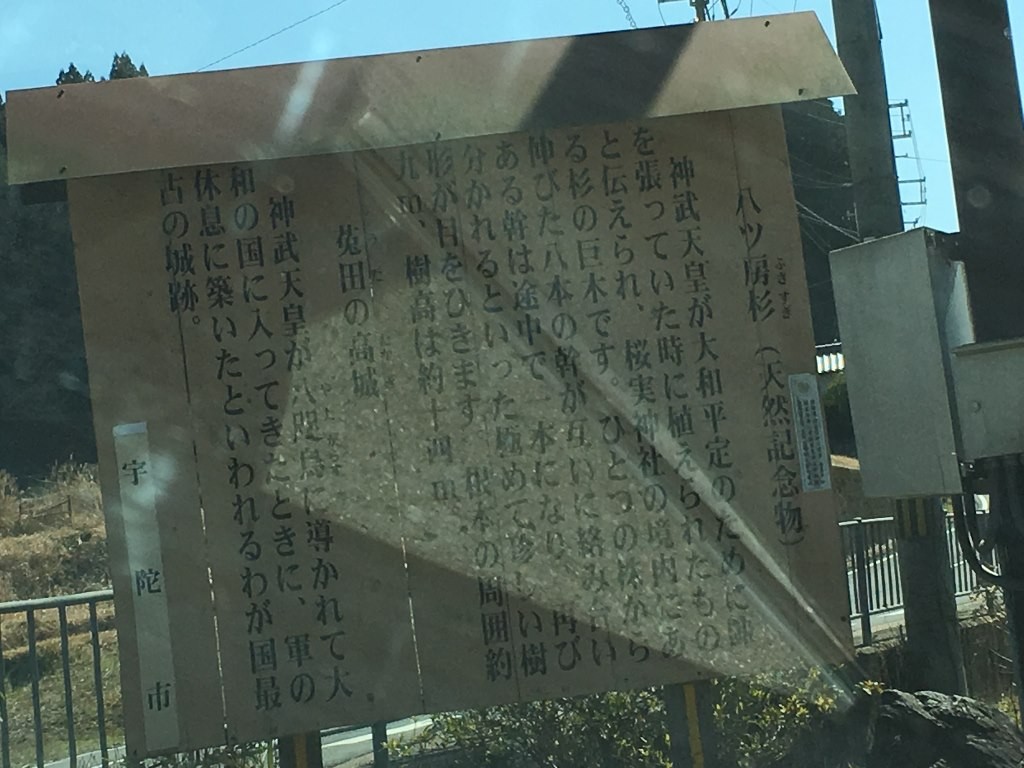 八ツ房杉(天然記念物)
ふさすぎ
神武天皇が大和平定のために陣
を張っていた時に植えられたもの
と伝えられ、桜実神社の境内にあ
る杉の巨木です。ひとつの株から
伸びた八本の幹が互いに絡み合い
ある幹は途中で一本になり、再び
分かれるといった極めて珍しい樹
形が目をひきます。根本の周囲約
九m、樹高は約十四m。
菟田の高城
神武天皇が八咫烏に導かれて大
和の国に入ってきたときに、軍の
休息に築いたといわれるわが国最
古の城跡。
宇陀市